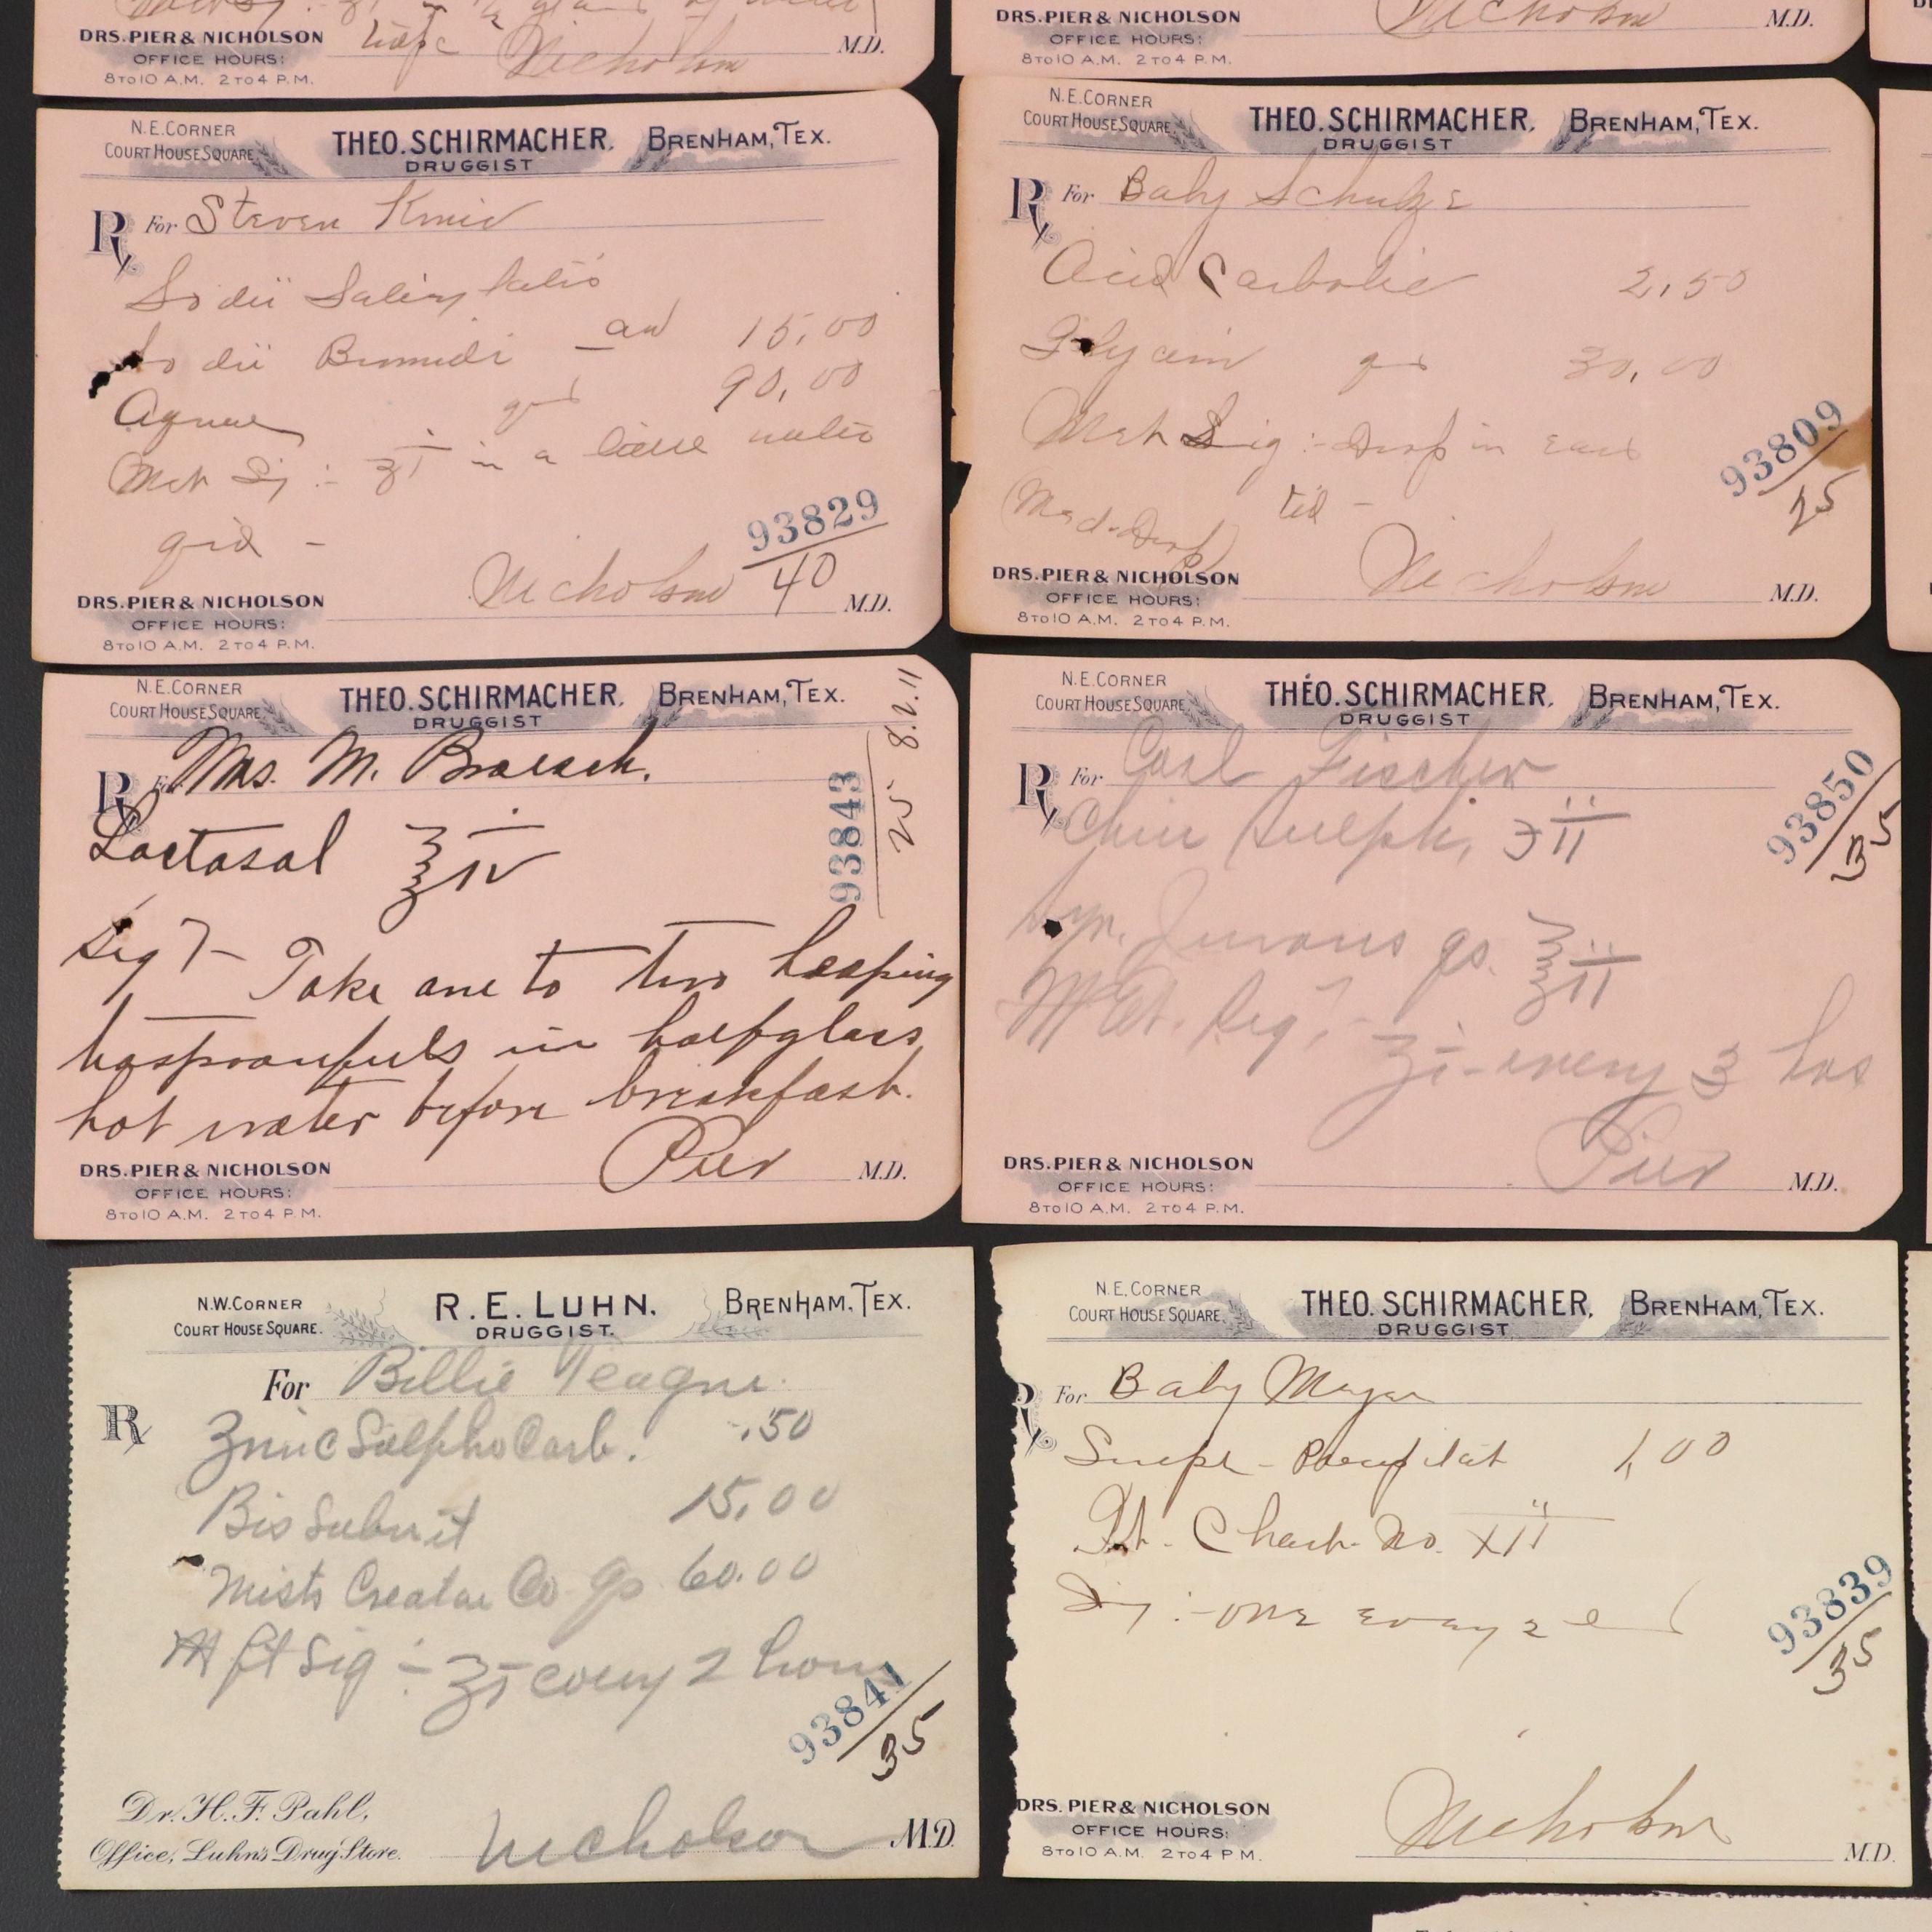 DRS. PIER & NICHOLSON Nicholson M.D.
OFFICE HOURS:
8 TO 10 A.M. 2 TO 4 P.M.
DRS. PIER & NICHOLSON Nicholson M.D.
OFFICE HOURS:
8 TO 10 A.M. 2 TO 4 P.M.
N.E. CORNER
COURT HOUSE SQUARE.
THEO. SCHIRMACHER, BRENHAM, TEX.
DRUGGIST
Rx For Steven
Sodii
Sodii aa 15,00
qs 90,00
in a little water
qid -
93829
40
Nicholson M.D.
DRS. PIER & NICHOLSON
OFFICE HOURS:
8 TO 10 A.M. 2 TO 4 P.M.
N.E. CORNER
COURT HOUSE SQUARE.
THEO. SCHIRMACHER, BRENHAM, TEX.
DRUGGIST
Rx For Baby Schulze
Acid Carbolic 2,50
qs 30,00
Sig :- Drop in ear
tid -
Med-Drop
93809
25
Nicholson M.D.
DRS. PIER & NICHOLSON
OFFICE HOURS:
8 TO 10 A.M. 2 TO 4 P.M.
N.E. CORNER
COURT HOUSE SQUARE.
THEO. SCHIRMACHER, BRENHAM, TEX.
DRUGGIST
8.2.11
Rx For Mrs. M.
Lactasal ℥ iv
93843
25
Sig :- Take one to two heaping
teaspoonfuls in half glass
hot water before breakfast.
Pier M.D.
DRS. PIER & NICHOLSON
OFFICE HOURS:
8 TO 10 A.M. 2 TO 4 P.M.
N.E. CORNER
COURT HOUSE SQUARE.
THEO. SCHIRMACHER, BRENHAM, TEX.
DRUGGIST
Rx For Carl Fischer
Chin Sulph. ℈ ii
qs. ℥ ii
M Et. Sig :- ʒi - every 3 hrs
93850
35
Pier M.D.
DRS. PIER & NICHOLSON
OFFICE HOURS:
8 TO 10 A.M. 2 TO 4 P.M.
N.W. CORNER
COURT HOUSE SQUARE.
R. E. LUHN. BRENHAM, TEX.
DRUGGIST.
For Billie Teague.
Rx Zinc Sulpho Carb. .50
Bis Subnit 15,00
Mist Creatae Co qs 60.00
M ft Sig :- ʒi every 2 hours
93841
35
Dr. H. F. Pahl,
Office, Luhn's Drug Store.
Nicholson M.D.
N.E. CORNER
COURT HOUSE SQUARE.
THEO. SCHIRMACHER, BRENHAM, TEX.
DRUGGIST
Rx For Baby
1,00
Chart. No. XII
Sig :- one every 2
93839
35
Nicholson M.D.
DRS. PIER & NICHOLSON
OFFICE HOURS:
8 TO 10 A.M. 2 TO 4 P.M.